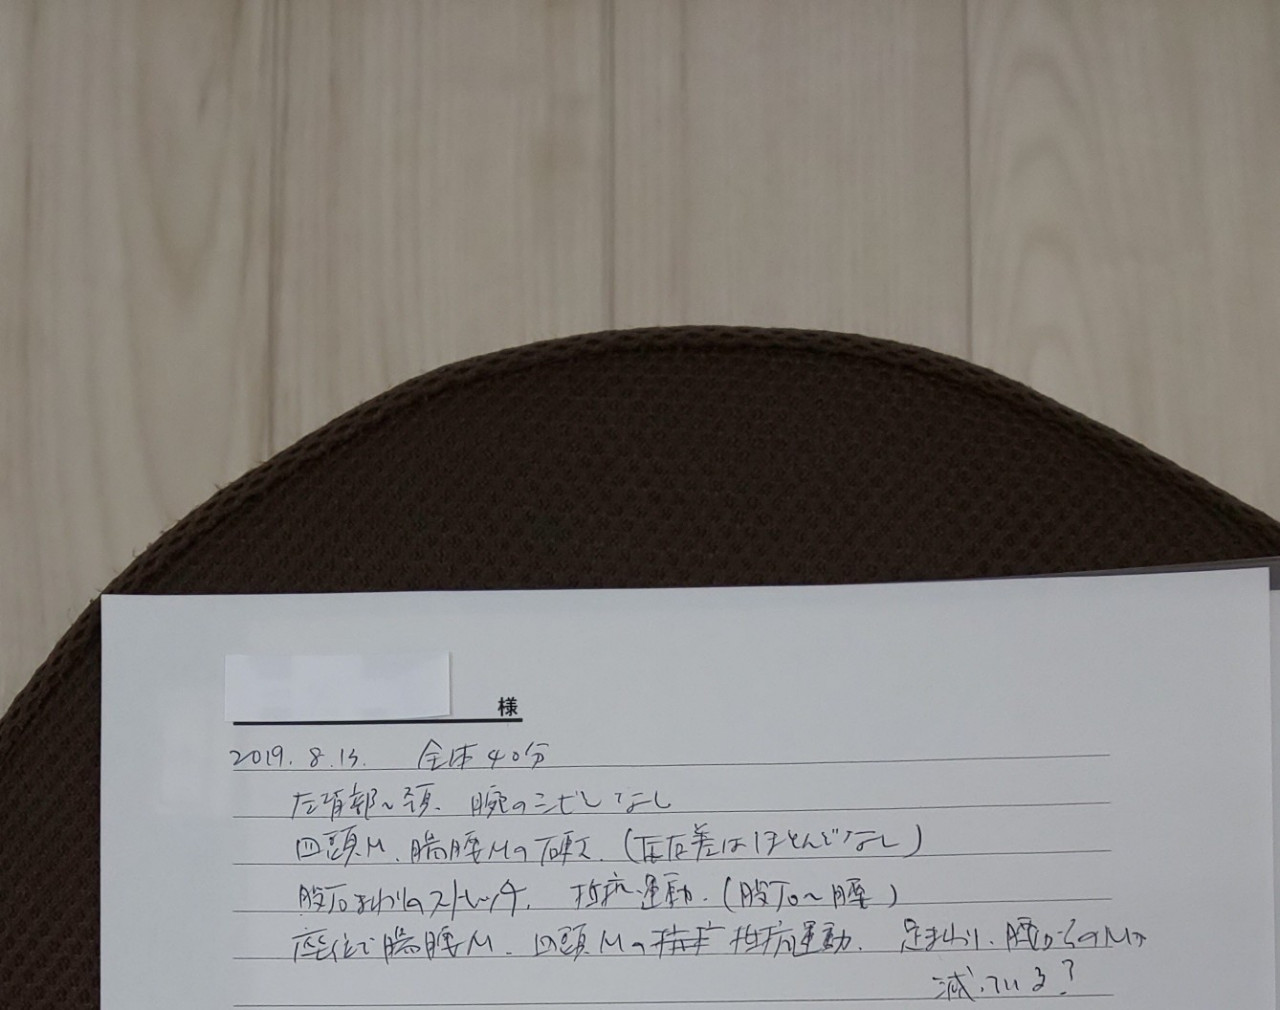 様
2019. 8. 13. 全体40分
左肩部〜頚、腕のシビレなし
四頭M、腸腰Mの硬さ、(左右差はほとんどなし)
股下まわりのストレッチ、抵抗運動、(股下〜腰)
座位で腸腰M、四頭Mの抵抗運動、足まわり、腰からのMが
減っている?